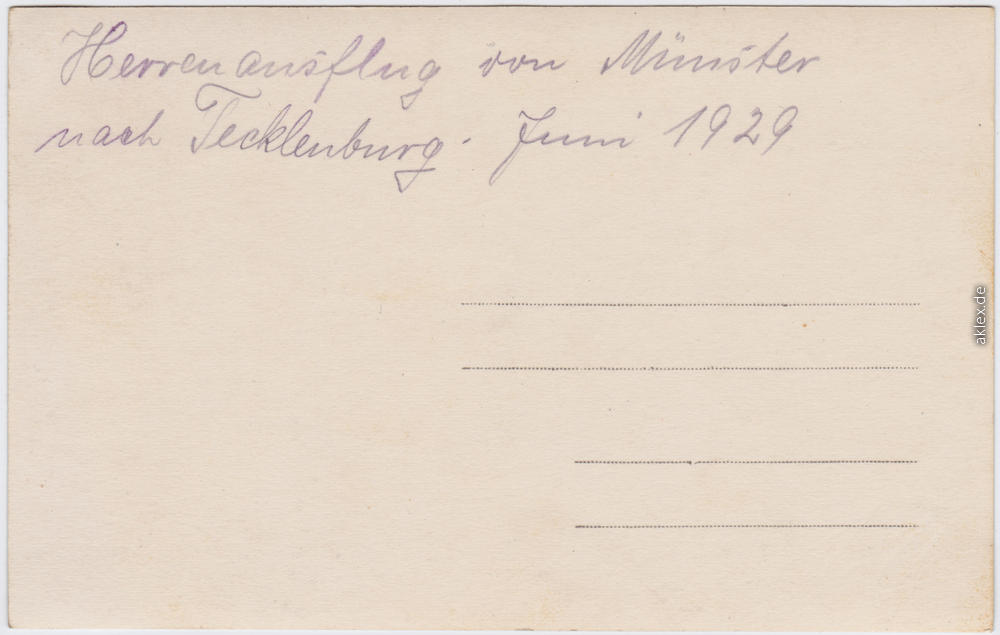 Herrenausflug von Münster
nach Tecklenburg. Juni 1929
aklex.de